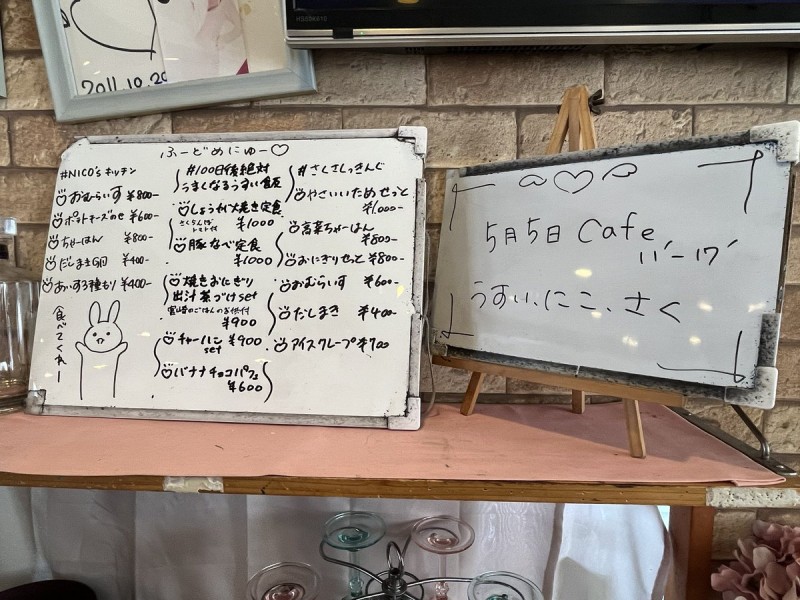 2011.10.20
ふーどめにゅー♡
#NICO'sキッチン
おむらいす ¥800-
ポテトチーズのせ ¥600-
ちゃーはん ¥800-
だしまき4個 ¥400-
あいす3種もり ¥400-
食べてくれー
#100日後絶対
うまくなるうすい食友
しょうが焼き定食
¥1000
豚なべ定食
¥1000
焼きおにぎり
出汁茶づけset
¥900
チャーハン ¥900
set
バナナチョコパフェ
¥600
#さくさくっきんぐ
やさいいためせっと
¥1000-
高菜ちゃーはん
¥800-
おにぎりせっと ¥800-
おむらいす ¥600-
だしまき ¥400-
アイスクレープ ¥700
5月5日 Cafe
11'-17'
うすい、にこ、さく